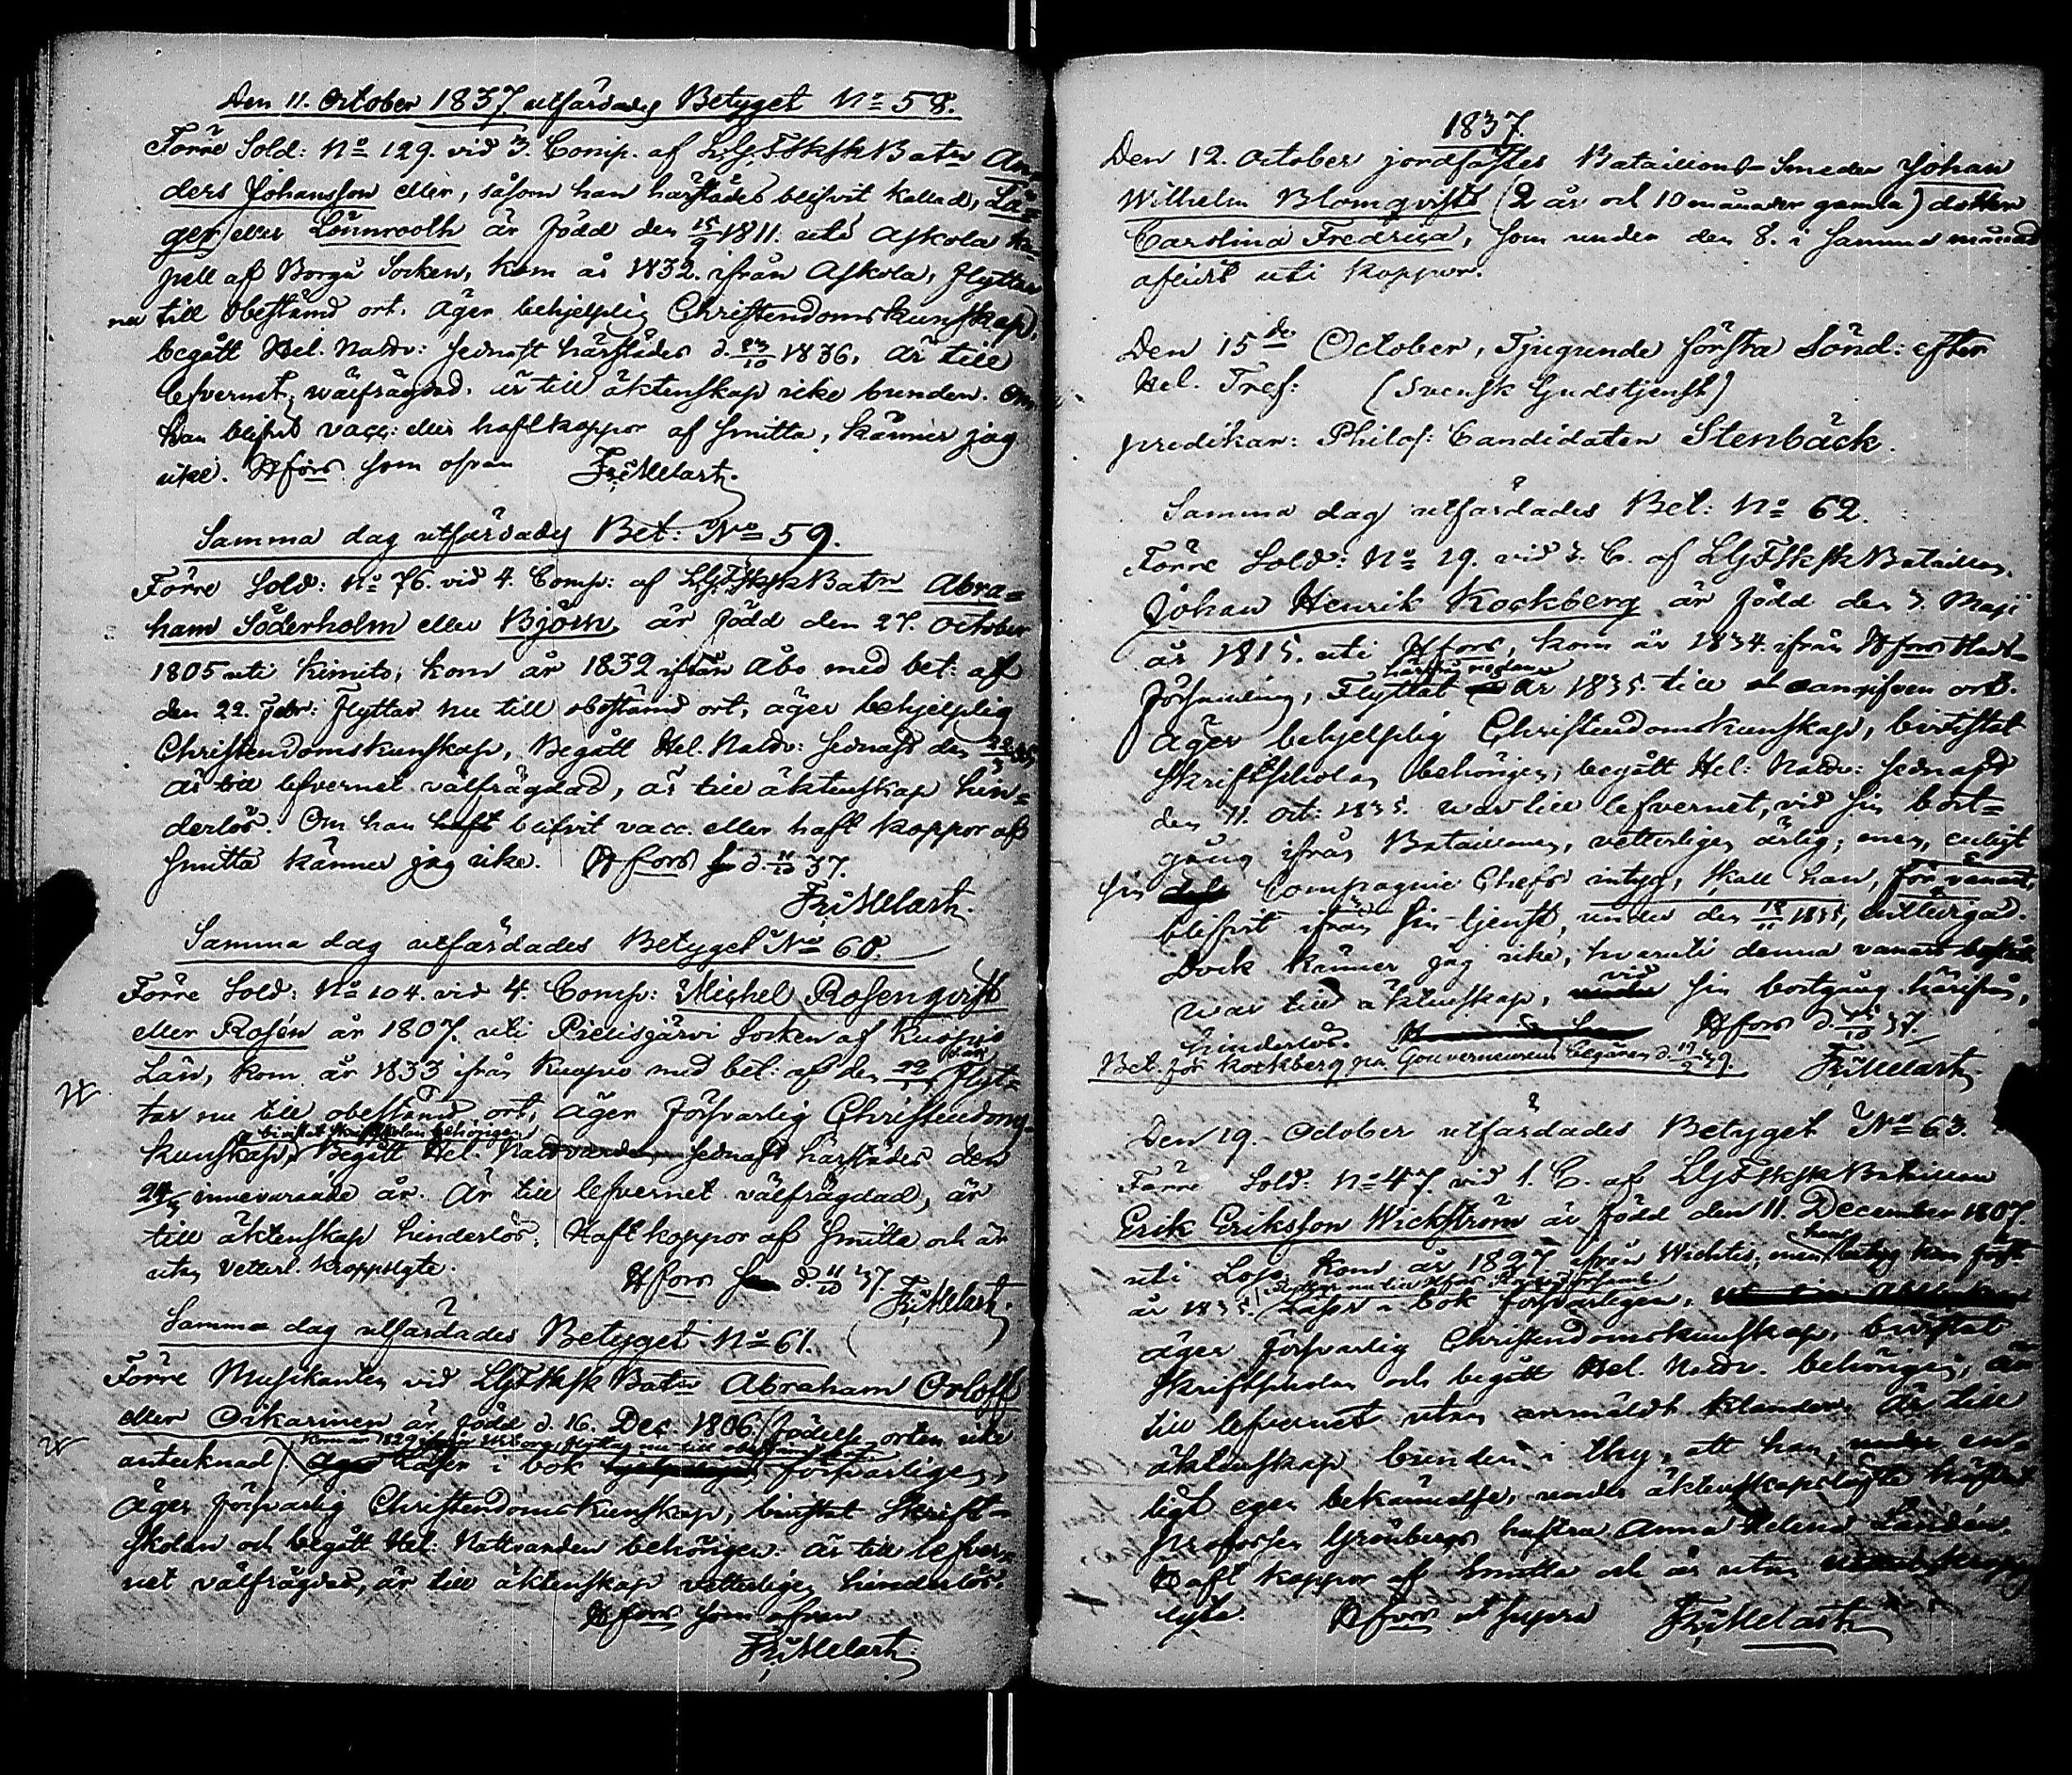 Den 11. October 1837 utfärdades Betyget No 58.
Förre Sold: No 129. vid 3. Comp. af LGFSkSkBatn An=
ders Johansson eller, såsom han härstädes blifvit kallad, La=
ger eller Lönnrooth är född den 15/9 1811. uti Askola Ka=
pell af Borgå Socken, kom år 1832. ifrån Askola, flyttar
nu till obestämd ort. Äger behjelplig Christendomskunskap,
begått Hel. Nattv: sednast härstädes d. 23/10 1836. är till
lefvernet välfrägdad. är till äktenskap icke bunden. Om
han blifvit vacc: eller haft koppor af smitta, känner jag
icke. Hfors som ofvan Fr: Melart.
Samma dag utfärdades Bet: No 59.
Förre Sold: No 76. vid 4. Comp: af LGFSkSkBatn Abra=
ham Söderholm eller Björn, är född den 27. October
1805 uti Kimito, kom år 1832 ifrån Åbo med bet: af
den 22. Febr: flyttar nu till obestämd ort, äger behjelplig
Christendomskunskap, Begått Hel. Nattv: sednast den
är till lefvernet välfrägdad, är till äktenskap hin=
derlös. Om han haft blifvit vacc. eller haft koppor af
smitta känner jag icke. Hfors d. 11/10 37.
Fr: Melart.
Samma dag utfärdades Betyget No 60.
Förre Sold: No 104. vid 4. Comp: Michel Rosenqvist
eller Rosén är 1807. uti Pielisjärvi Socken af Kuopio
Län, kom år 1833 ifrån Kuopio med bet: af den flyt=
tar nu till obestämd ort, äger försvarlig Christendoms-
bivistat skriftskolan behörigen
kunskap, Begått Hel. Nattvarden sednast härstädes den
24/9 innevarande år. Är till lefvernet välfrägdad, är
till äktenskap hinderlös. Haft koppor af smitta och är
utan vetterl. kroppslyte.
Hfors d. 11/10 37. Fr: Melart.
Samma dag utfärdades Betyget No 61.
Förre Musikanten vid LGFSkSk Batn Abraham Orloff
eller Oikarinen är född d. 16. Dec. 1806. (födelse orten icke
kom år 1829 ifrån Wiborg, flyttar nu till obestämd ort
antecknad) äger Läser i bok försvarligen,
äger försvarlig Christendomskunskap, bivistat Skrift=
skolan och begått Hel: Nattvarden behörigen. är till lefver=
net välfrägdad, är till äktenskap vetterligen hinderlös.
Hfors som ofvan
Fr: Melart.
1837.
Den 12. October jordfästes Bataillons-Smeden Johan
Wilhelm Blomqvists (2 år och 10 månader gamla) dotter
Carolina Fredrica, som under den 8. i samma månad
aflidit uti koppor.
Den 15de October, Tjugunde första Sönd: efter
Hel. Tref: (Svensk Gudstjenst)
predikar: Philos: Candidaten Stenbäck.
Samma dag utfärdades Bet: No 62.
Förre Sold: No 19. vid 3. C. af LGFSkSk Bataillon.
Johan Henrik Kockberg är född den 3. Maji
år 1815. uti Hfors, kom år 1834. ifrån Hfors Stads-
härifrån redan
församling, Flyttat år 1835. till oangifven ort.
Äger behjelplig Christendomskunskap, bivistat
Skriftskolan behörigen, begått Hel: Nattv: sednast
den 11. Oct: 1835. war till lefvernet, vid sin bort=
gång ifrån Bataillonen, vetterligen ärlig; men, enligt
sin Compagnie Chefs intyg, skall han, för vanart,
blifvit ifrån sin tjenst, under den 18/11 1835,
Dock känner jag icke, hvaruti denna vanart bestått
war till äktenskap, vid sin bortgång härifrån,
hinderlös. Hfors d. 15/10 37.
Bet. för Kockberg på Gouverneurens begäran d. Fr: Melart.
Den 19. October utfärdades Betyget No 63.
Förre Sold: No 47. vid 1. C. af LGFSkSk Bataillon
Erik Eriksson Wickström är född den 11. December 1807.
uti Lojo, kom år 1827. ifrån Wichtis, men hans betyg kom först
flyttar nu till Hfors
år 1835. Läser i bok försvarligen,
äger försvarlig Christendomskunskap, bivistat
skriftskolan och begått Hel. Nattv. behörigen, är
till lefvernet utan anmäldt klander. Är till
äktenskap bunden i thy, att han, en=
ligt egen bekännelse, under äktenskapslöfte häfdat
Professor Grönbergs hustru Anna Helena Lindén.
Haft koppor af smitta och är utan kropps
lyte. Hfors ut supra Fr: Melart.